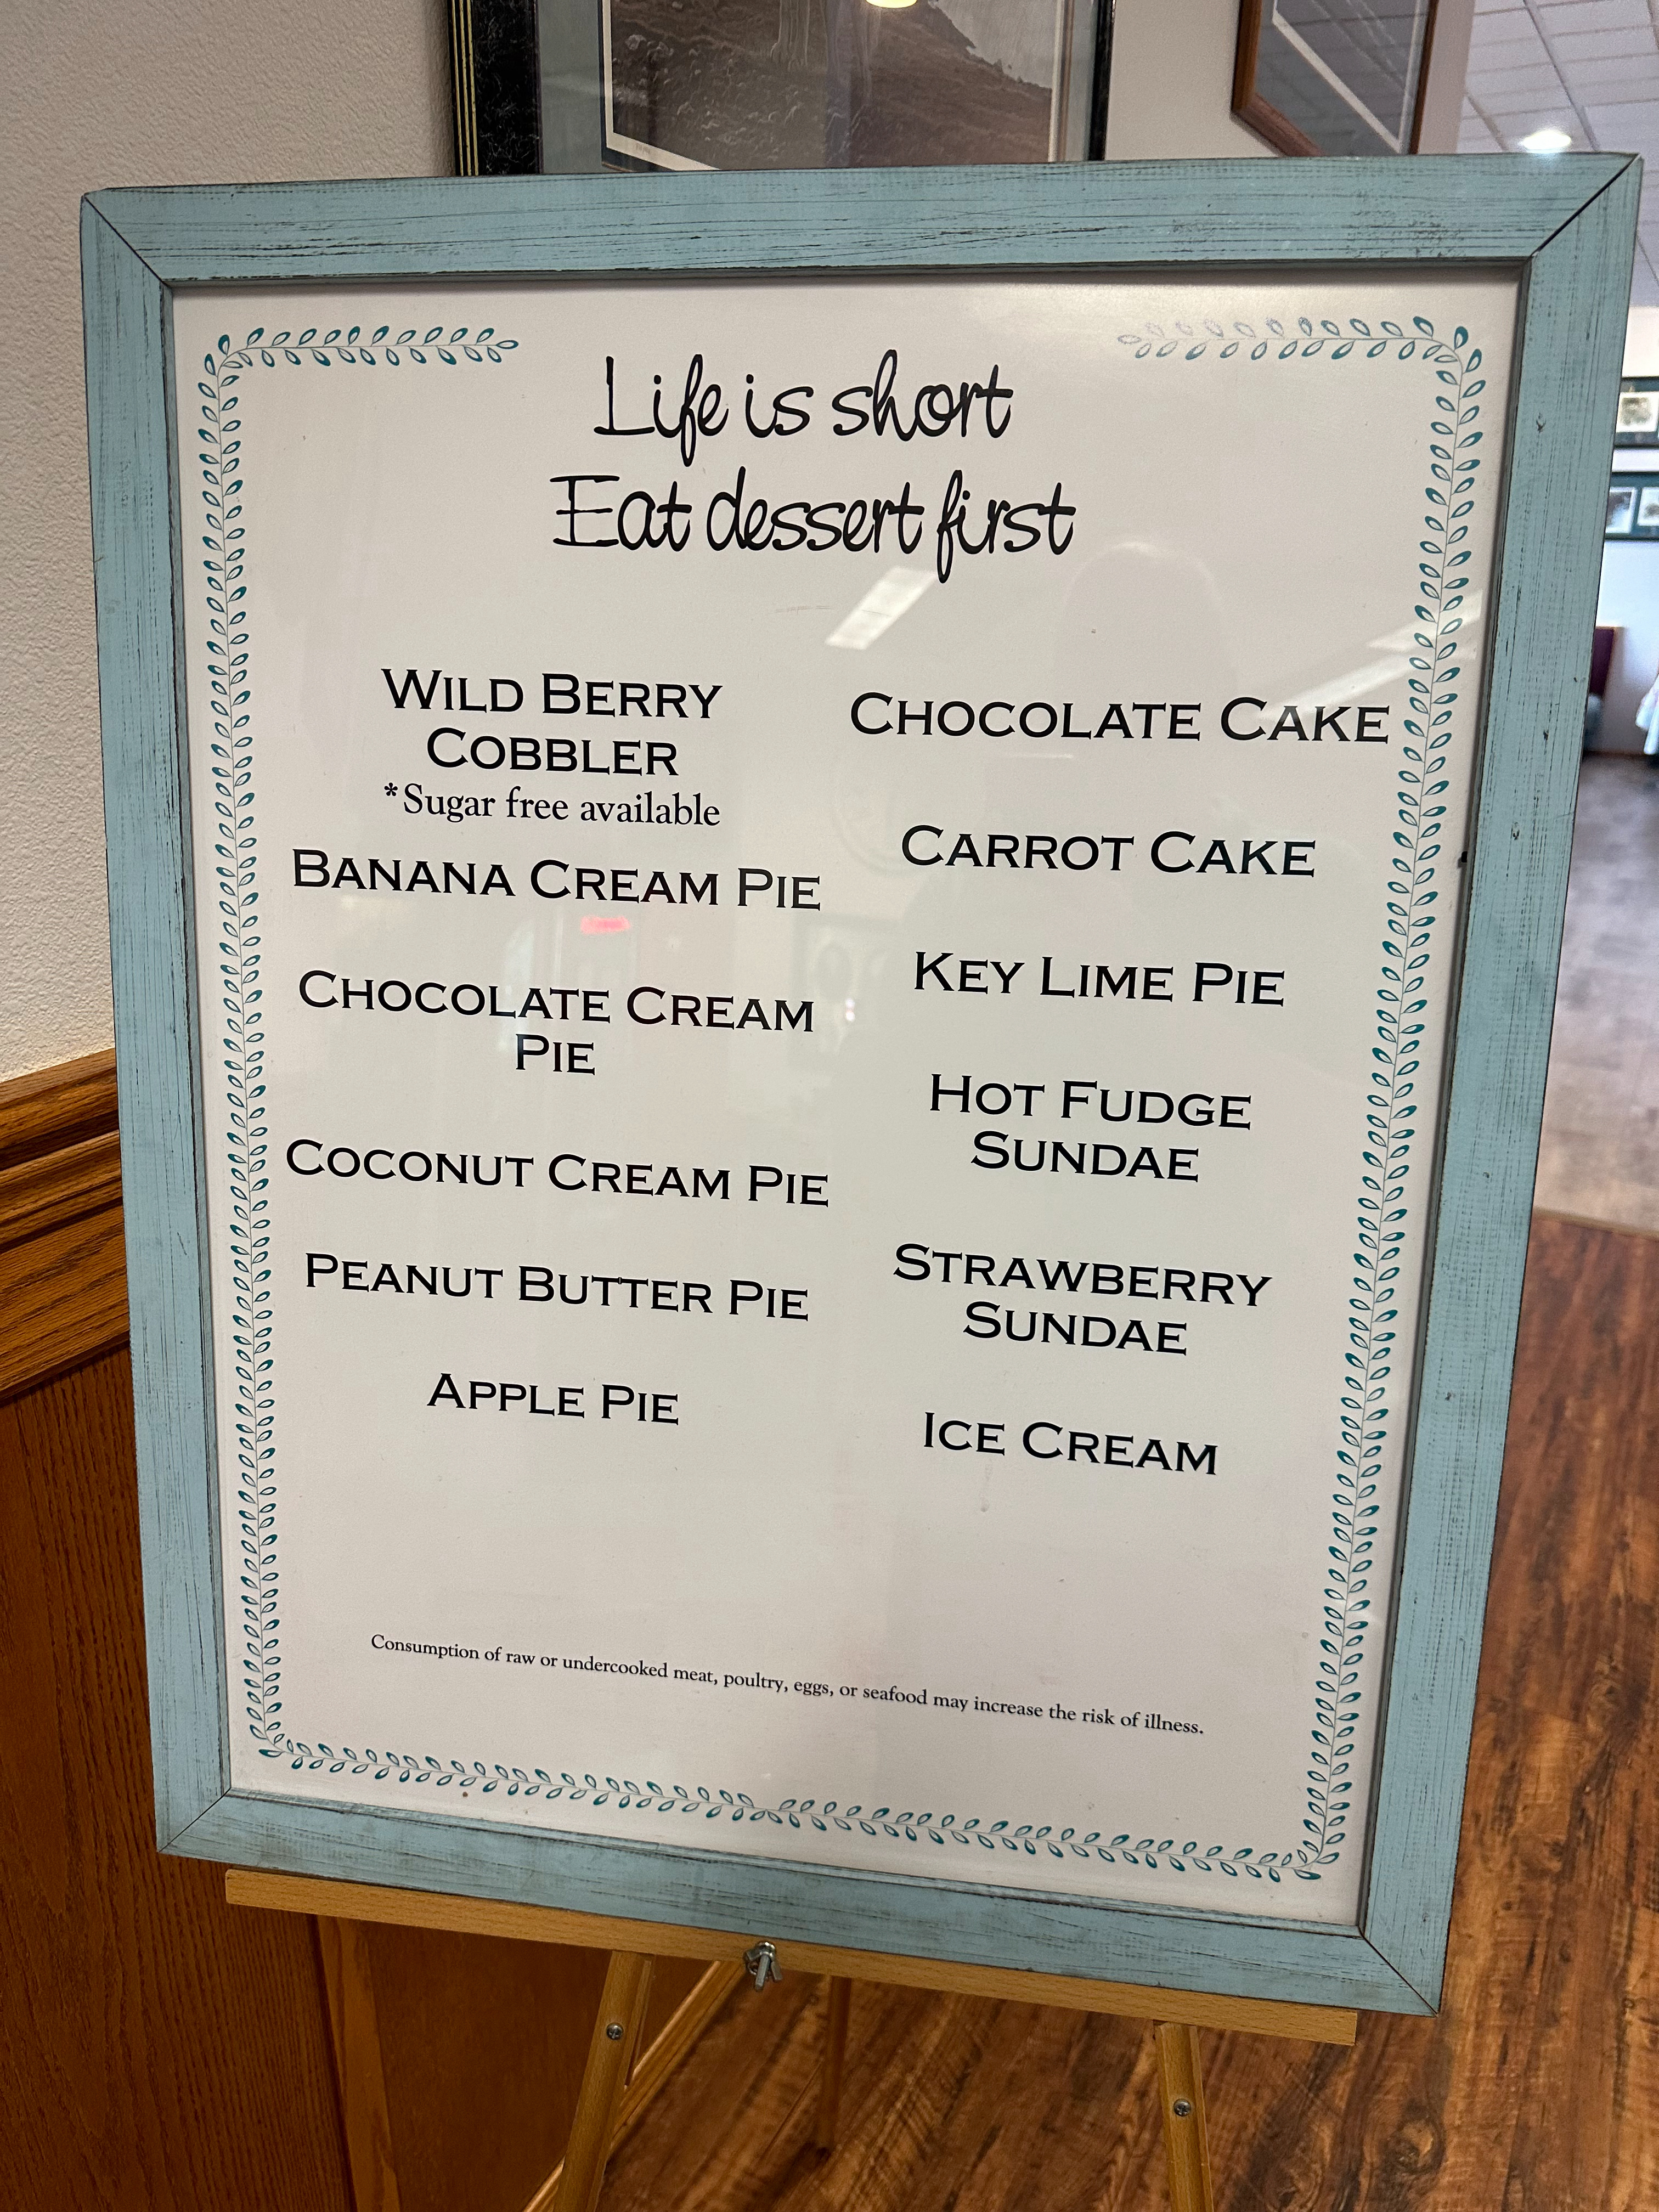 Life is short
Eat dessert first
WILD BERRY
COBBLER
*Sugar free available
BANANA CREAM PIE
CHOCOLATE CREAM
PIE
COCONUT CREAM PIE
PEANUT BUTTER PIE
APPLE PIE
CHOCOLATE CAKE
CARROT CAKE
KEY LIME PIE
HOT FUDGE
SUNDAE
STRAWBERRY
SUNDAE
ICE CREAM
Consumption of raw or undercooked meat, poultry, eggs, or seafood may increase the risk of illness.